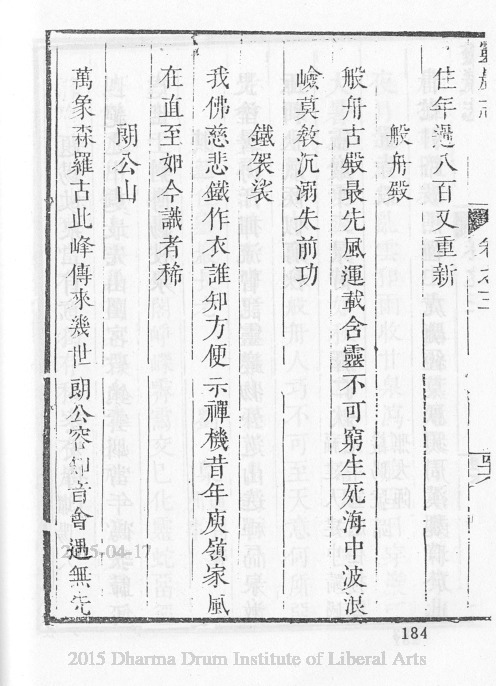 靈巖志 卷之三
住年過八百又重新
般舟殿
般舟古殿最先風運載含靈不可窮生死海中波浪
嶮莫教沉溺失前功
鐵袈裟
我佛慈悲鐵作衣誰知方便示禪機昔年庾嶺家風
在直至如今識者稀
朗公山
萬象森羅古此峰傳來幾世朗公容知音會遇無先
184
2015-04-17
2015 Dharma Drum Institute of Liberal Arts